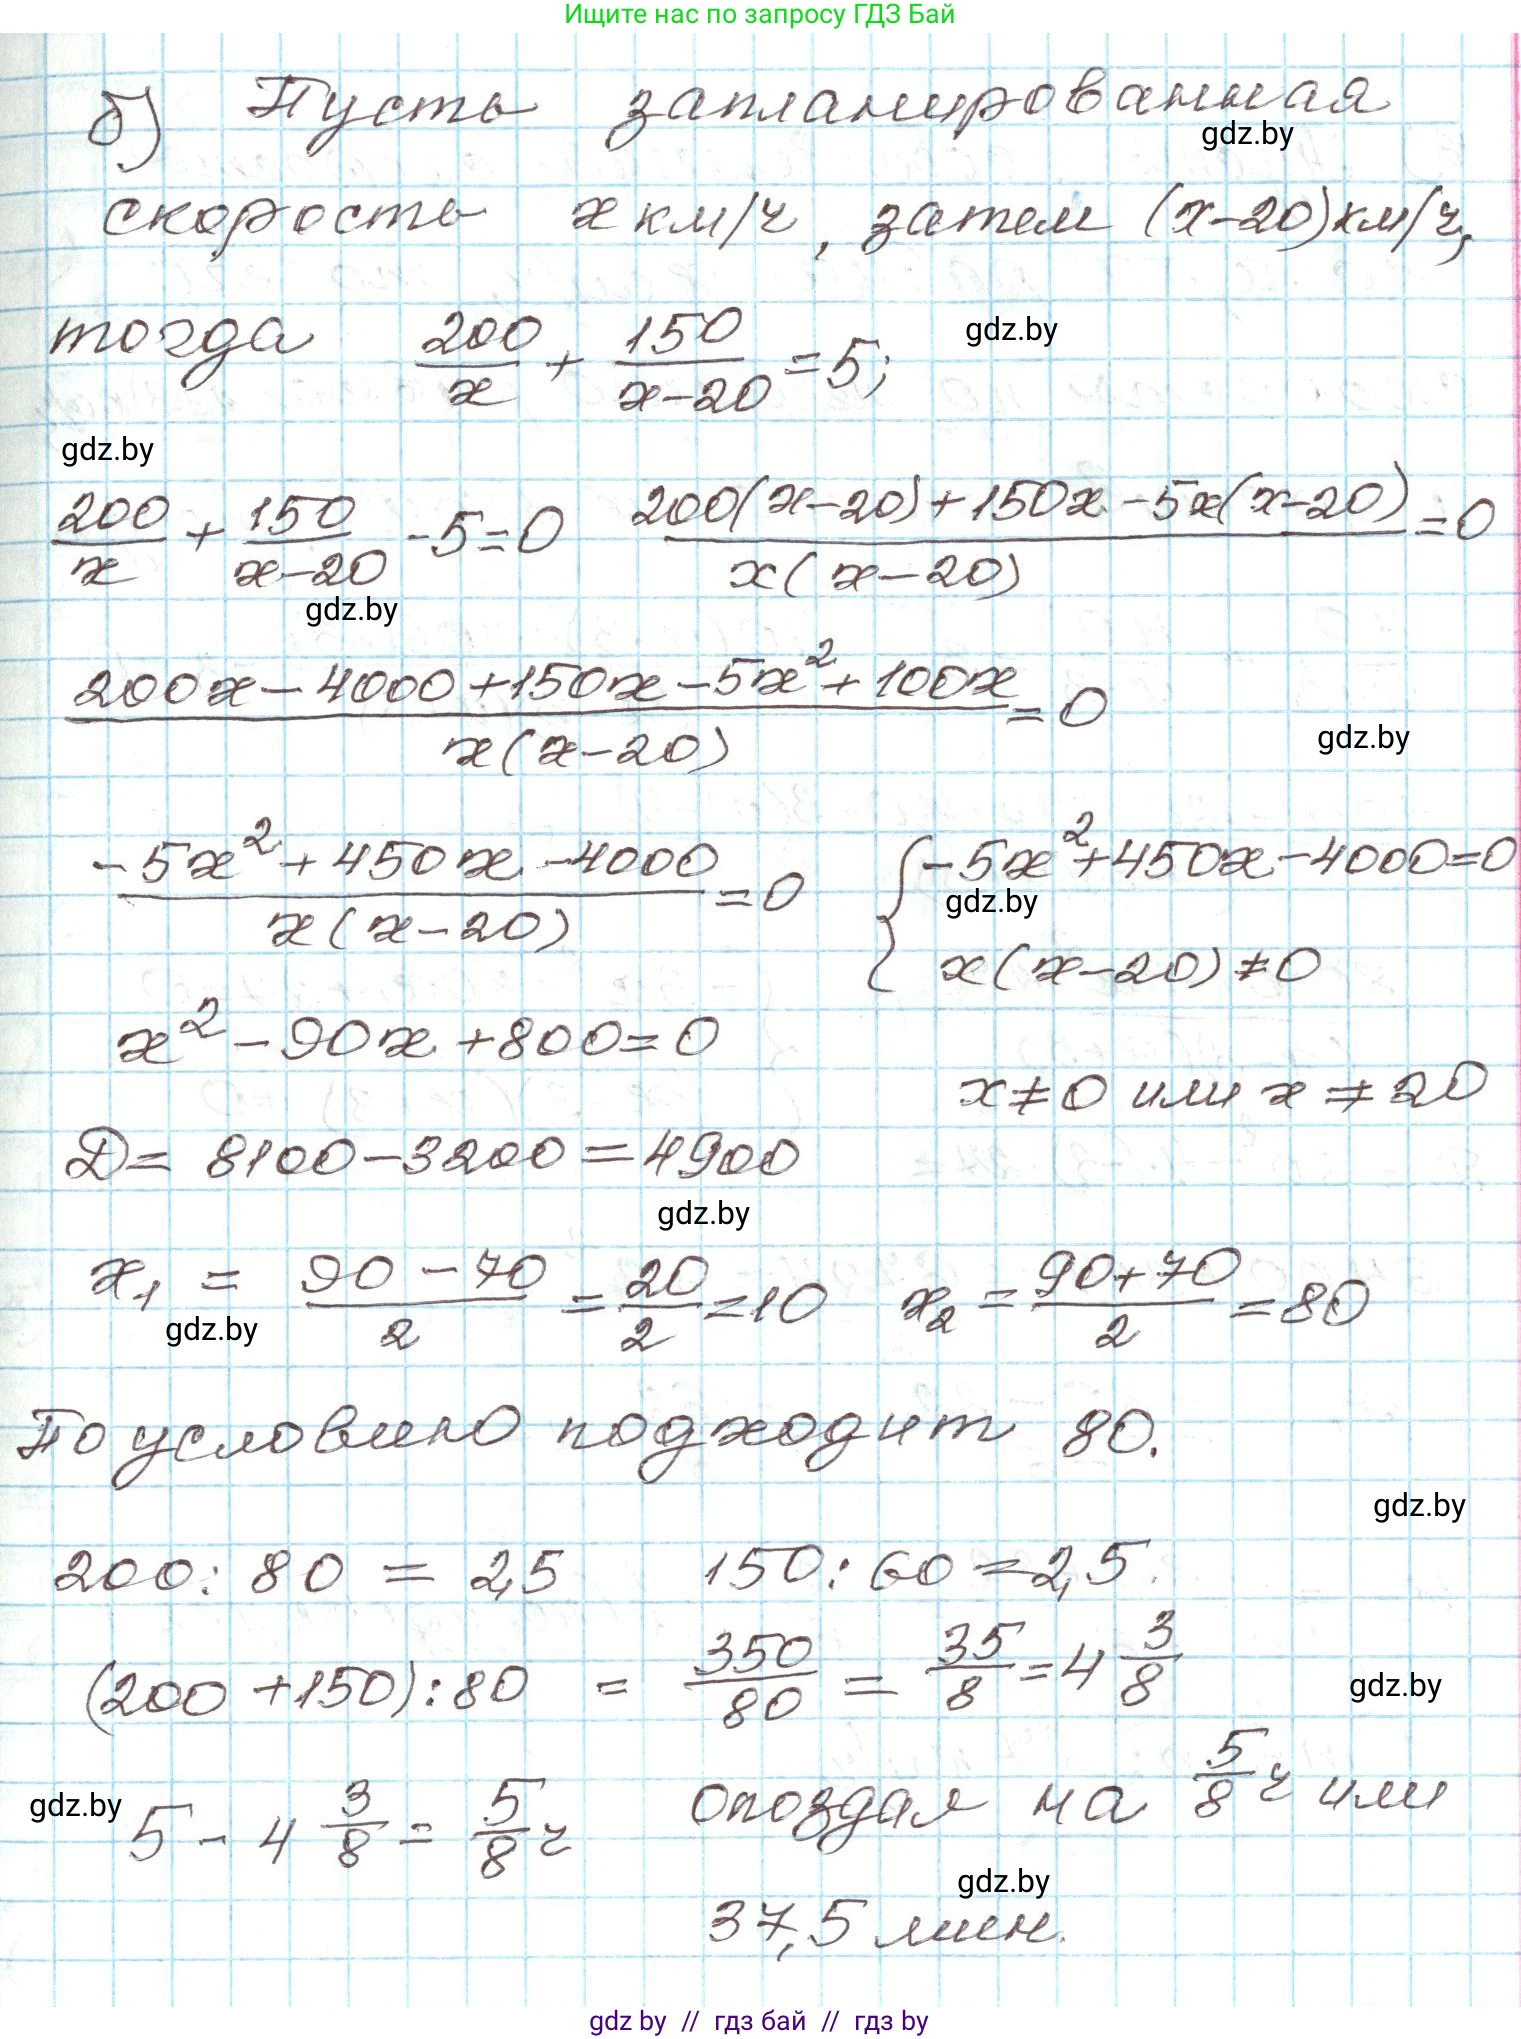 Ищите нас по запросу ГДЗ Бай
б) Пусть запланированная
gdz.by
скорость x км/ч, затем (x-20) км/ч,
тогда 200/x + 150/(x-20) = 5;
gdz.by
gdz.by
200/x + 150/(x-20) - 5 = 0   (200(x-20)+150x-5x(x-20))/(x(x-20)) = 0
gdz.by
(200x-4000+150x-5x²+100x)/(x(x-20)) = 0
gdz.by
(-5x²+450x-4000)/(x(x-20)) = 0   { -5x²+450x-4000=0
gdz.by
x(x-20)≠0
x²-90x+800=0
x≠0 или x≠20
D= 8100-3200=4900
gdz.by
x₁ = (90-70)/2 = 20/2 = 10   x₂ = (90+70)/2 = 80
gdz.by
По условию подходит 80.
gdz.by
200:80 = 2,5   150:60=2,5.
(200+150):80 = 350/80 = 35/8 = 4 3/8
gdz.by
gdz.by
5 - 4 3/8 = 5/8 ч   опоздал на 5/8 ч или
gdz.by
37,5 мин.
gdz by // гдз бай // гдз by